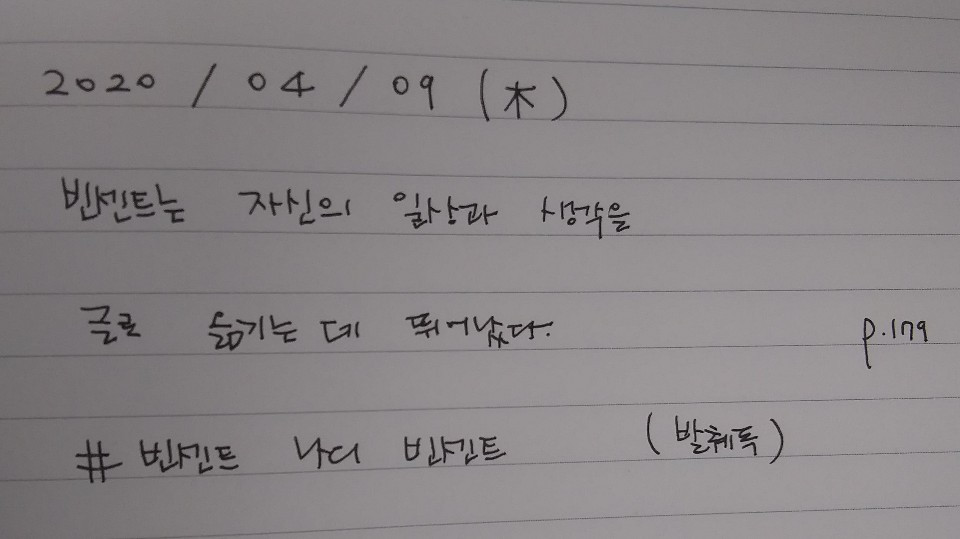 2020 / 04 / 09 (木)
빈센트는 자신의 일상과 생각을
글로 옮기는 데 뛰어났다. p.179
# 빈센트 나의 빈센트 (발췌독)